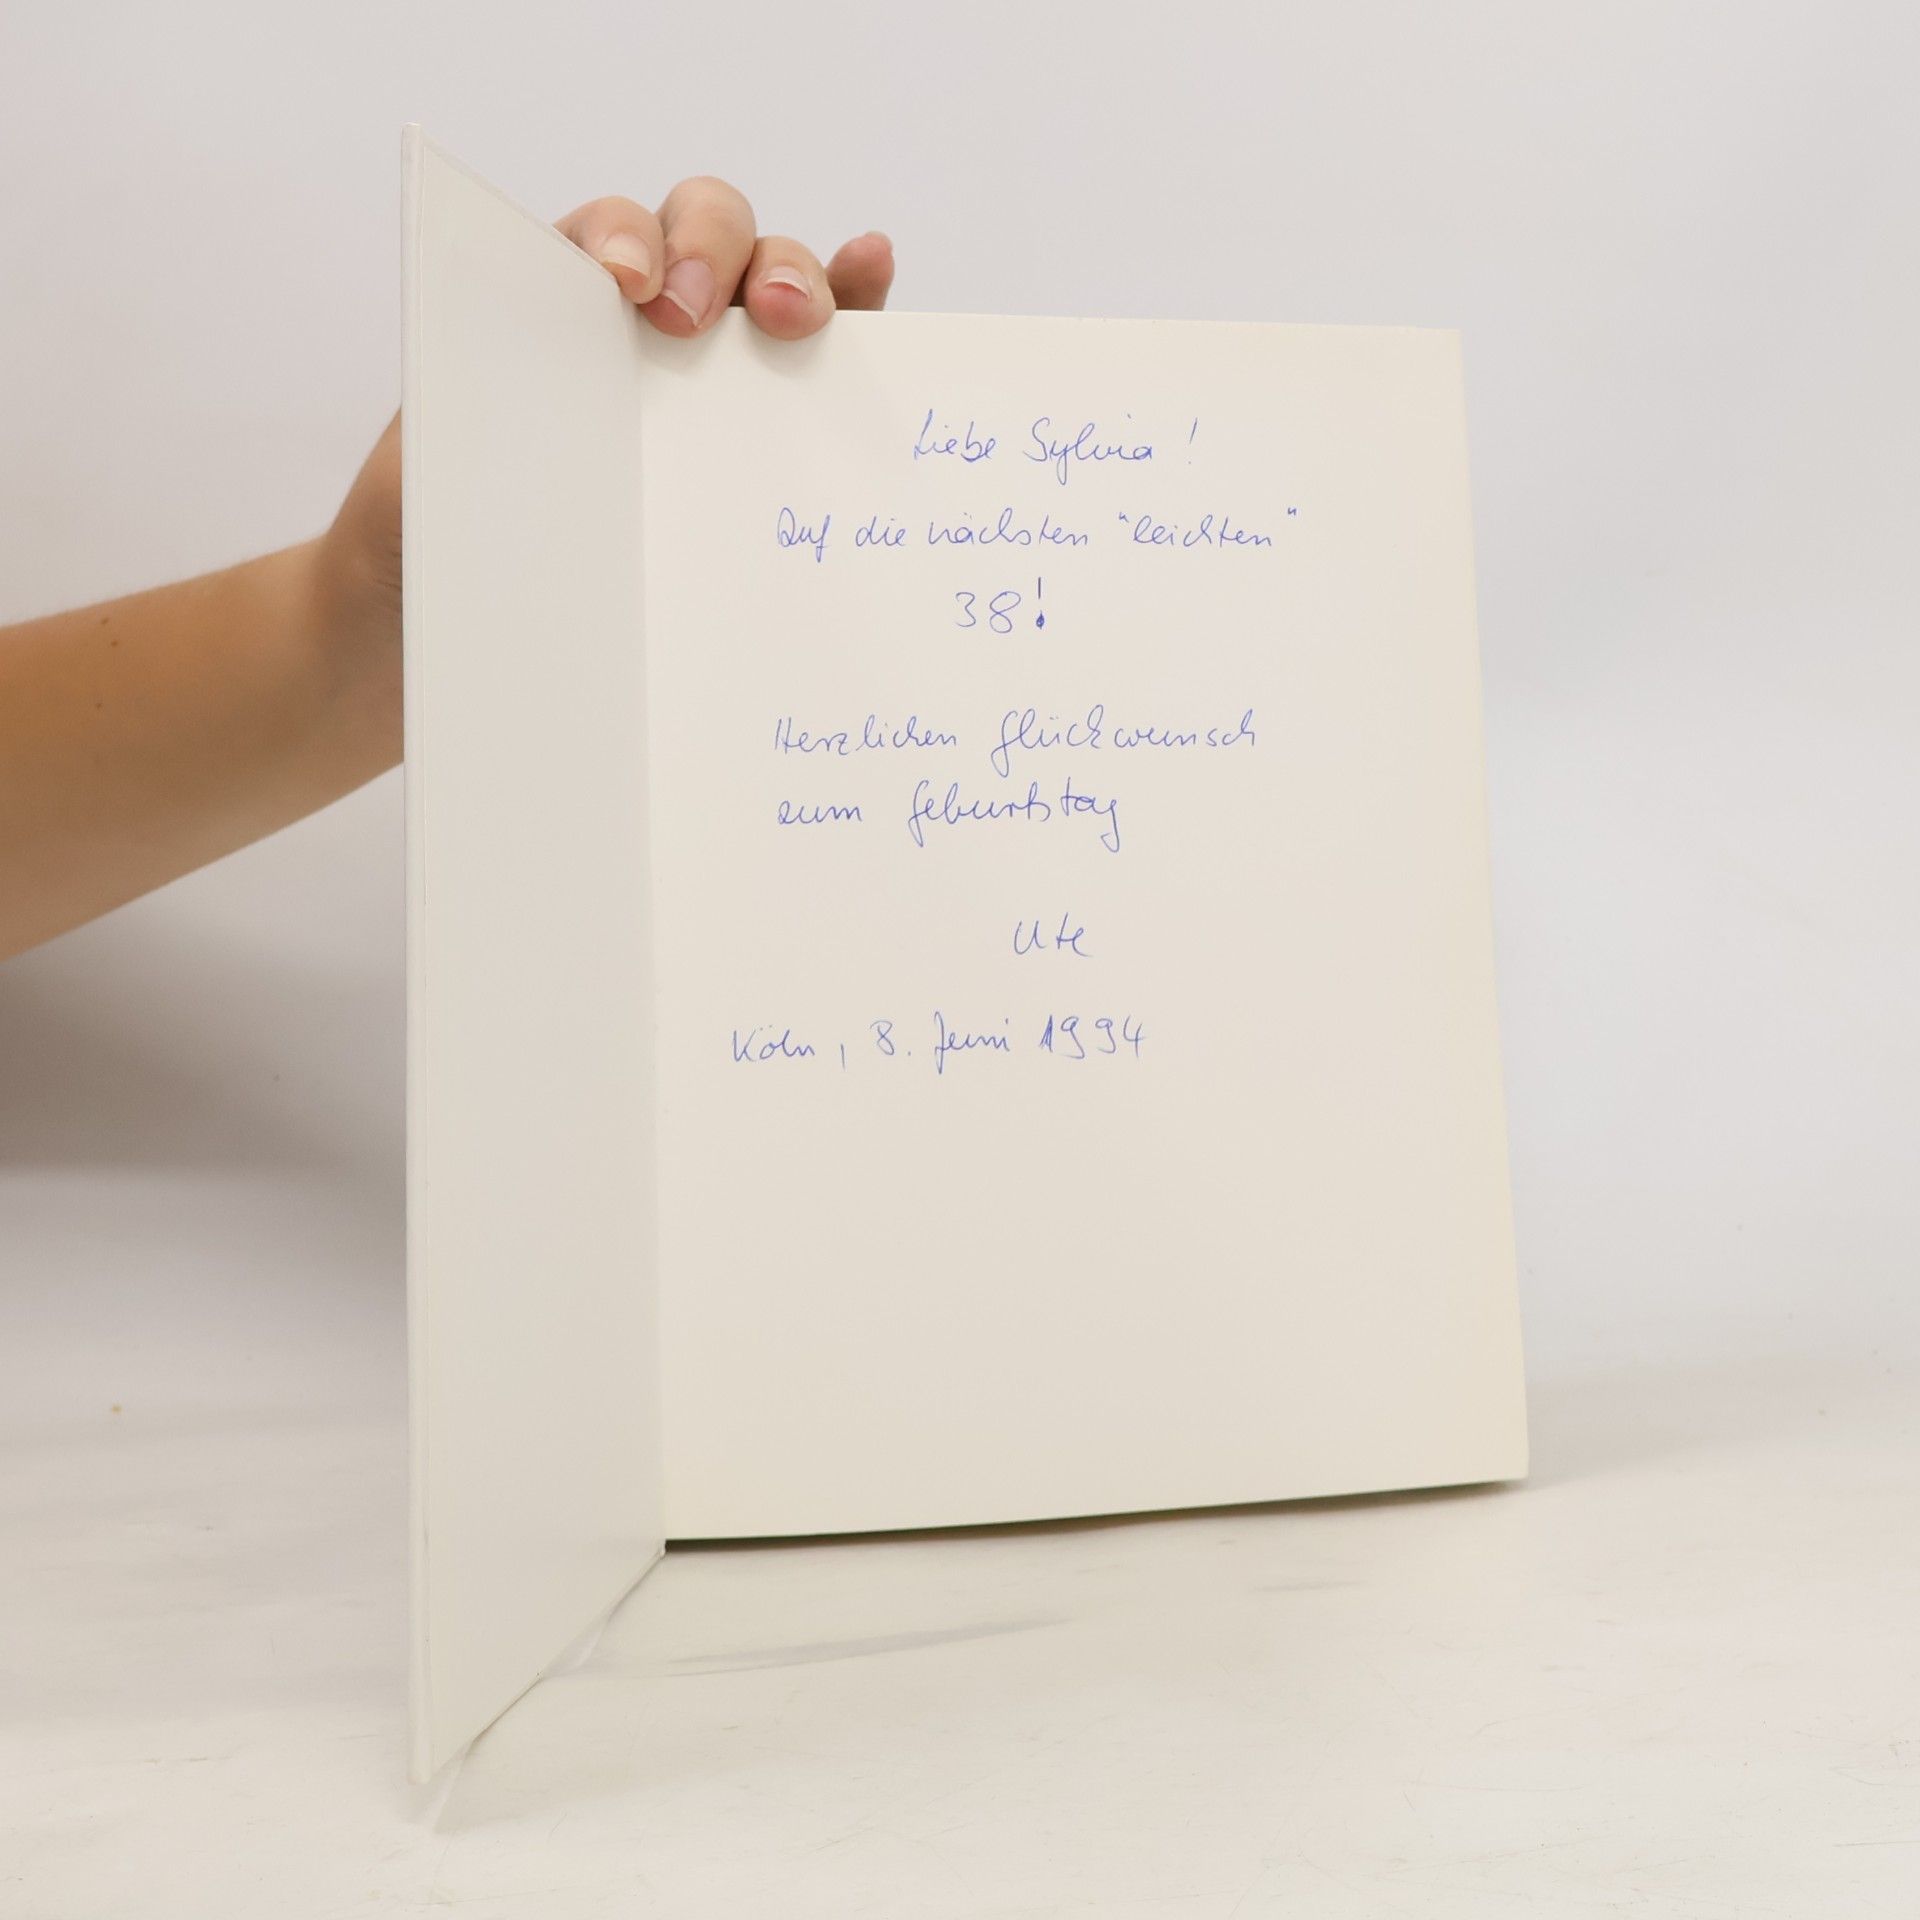 Liebe Sylvia !
Auf die nächsten "leichten"
38!
Herzlichen Glückwunsch
zum Geburtstag
Ute
Köln, 8. Juni 1994